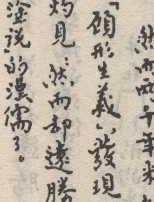 然而兩千年來
「顧形生義」發現
灼見，然而却遠勝
塗說」的漢儒了。